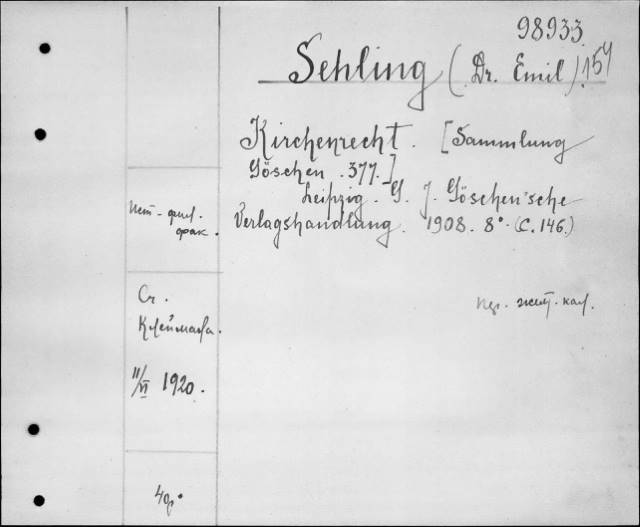 98933
Sehling (Dr. Emil) 154
Kirchenrecht. [Sammlung
Göschen. 377.]
Leipzig. G. J. Göschen'sche
Verlagshandlung. 1908. 8° (С. 146.)
фак.
Ст.
11/VI 1920.
4 ф.